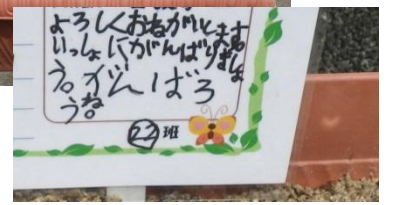 よろしくおねがいします
いっしょにがんばりましょ
う。がんばろ
うね。
22班